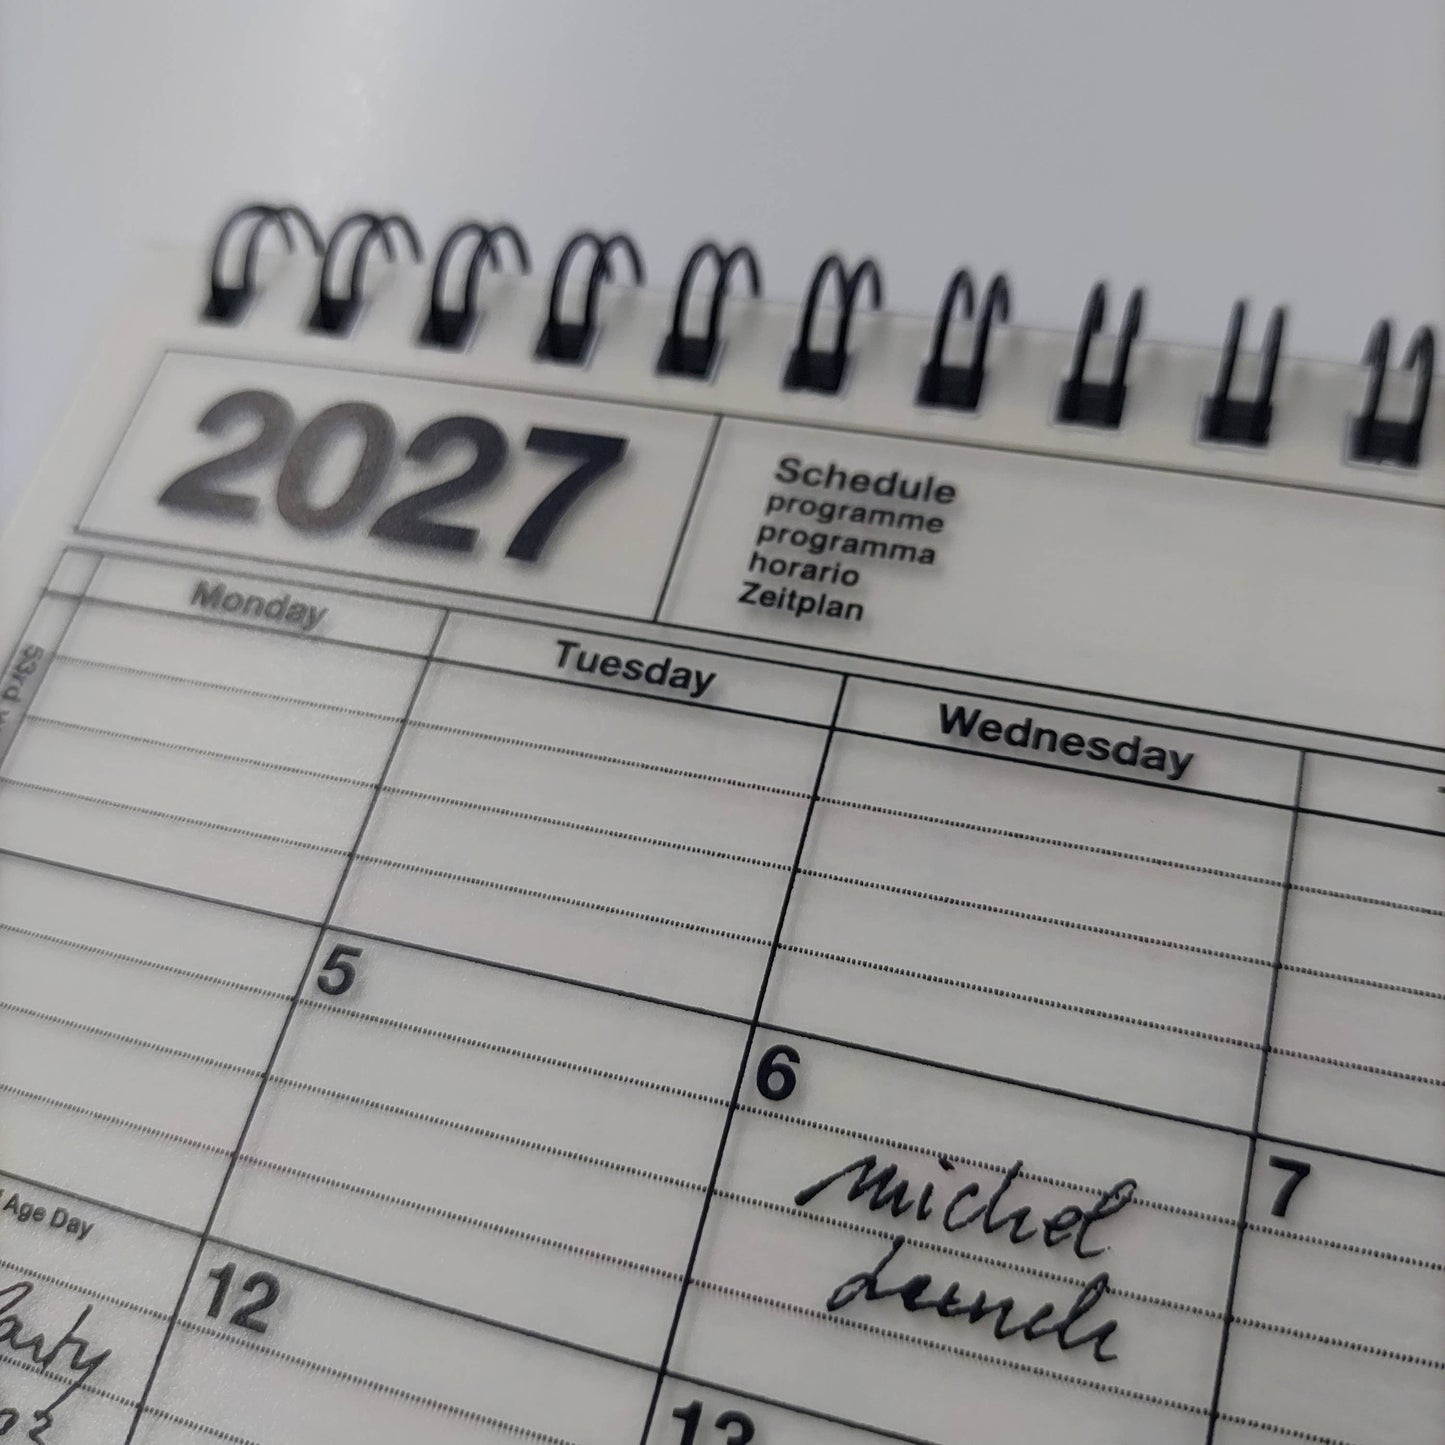 2027
Schedule
programme
programma
horario
Zeitplan
Monday
Tuesday
Wednesday
53rd
5
6
7
michel
Lunch
Age Day
12
13
Party